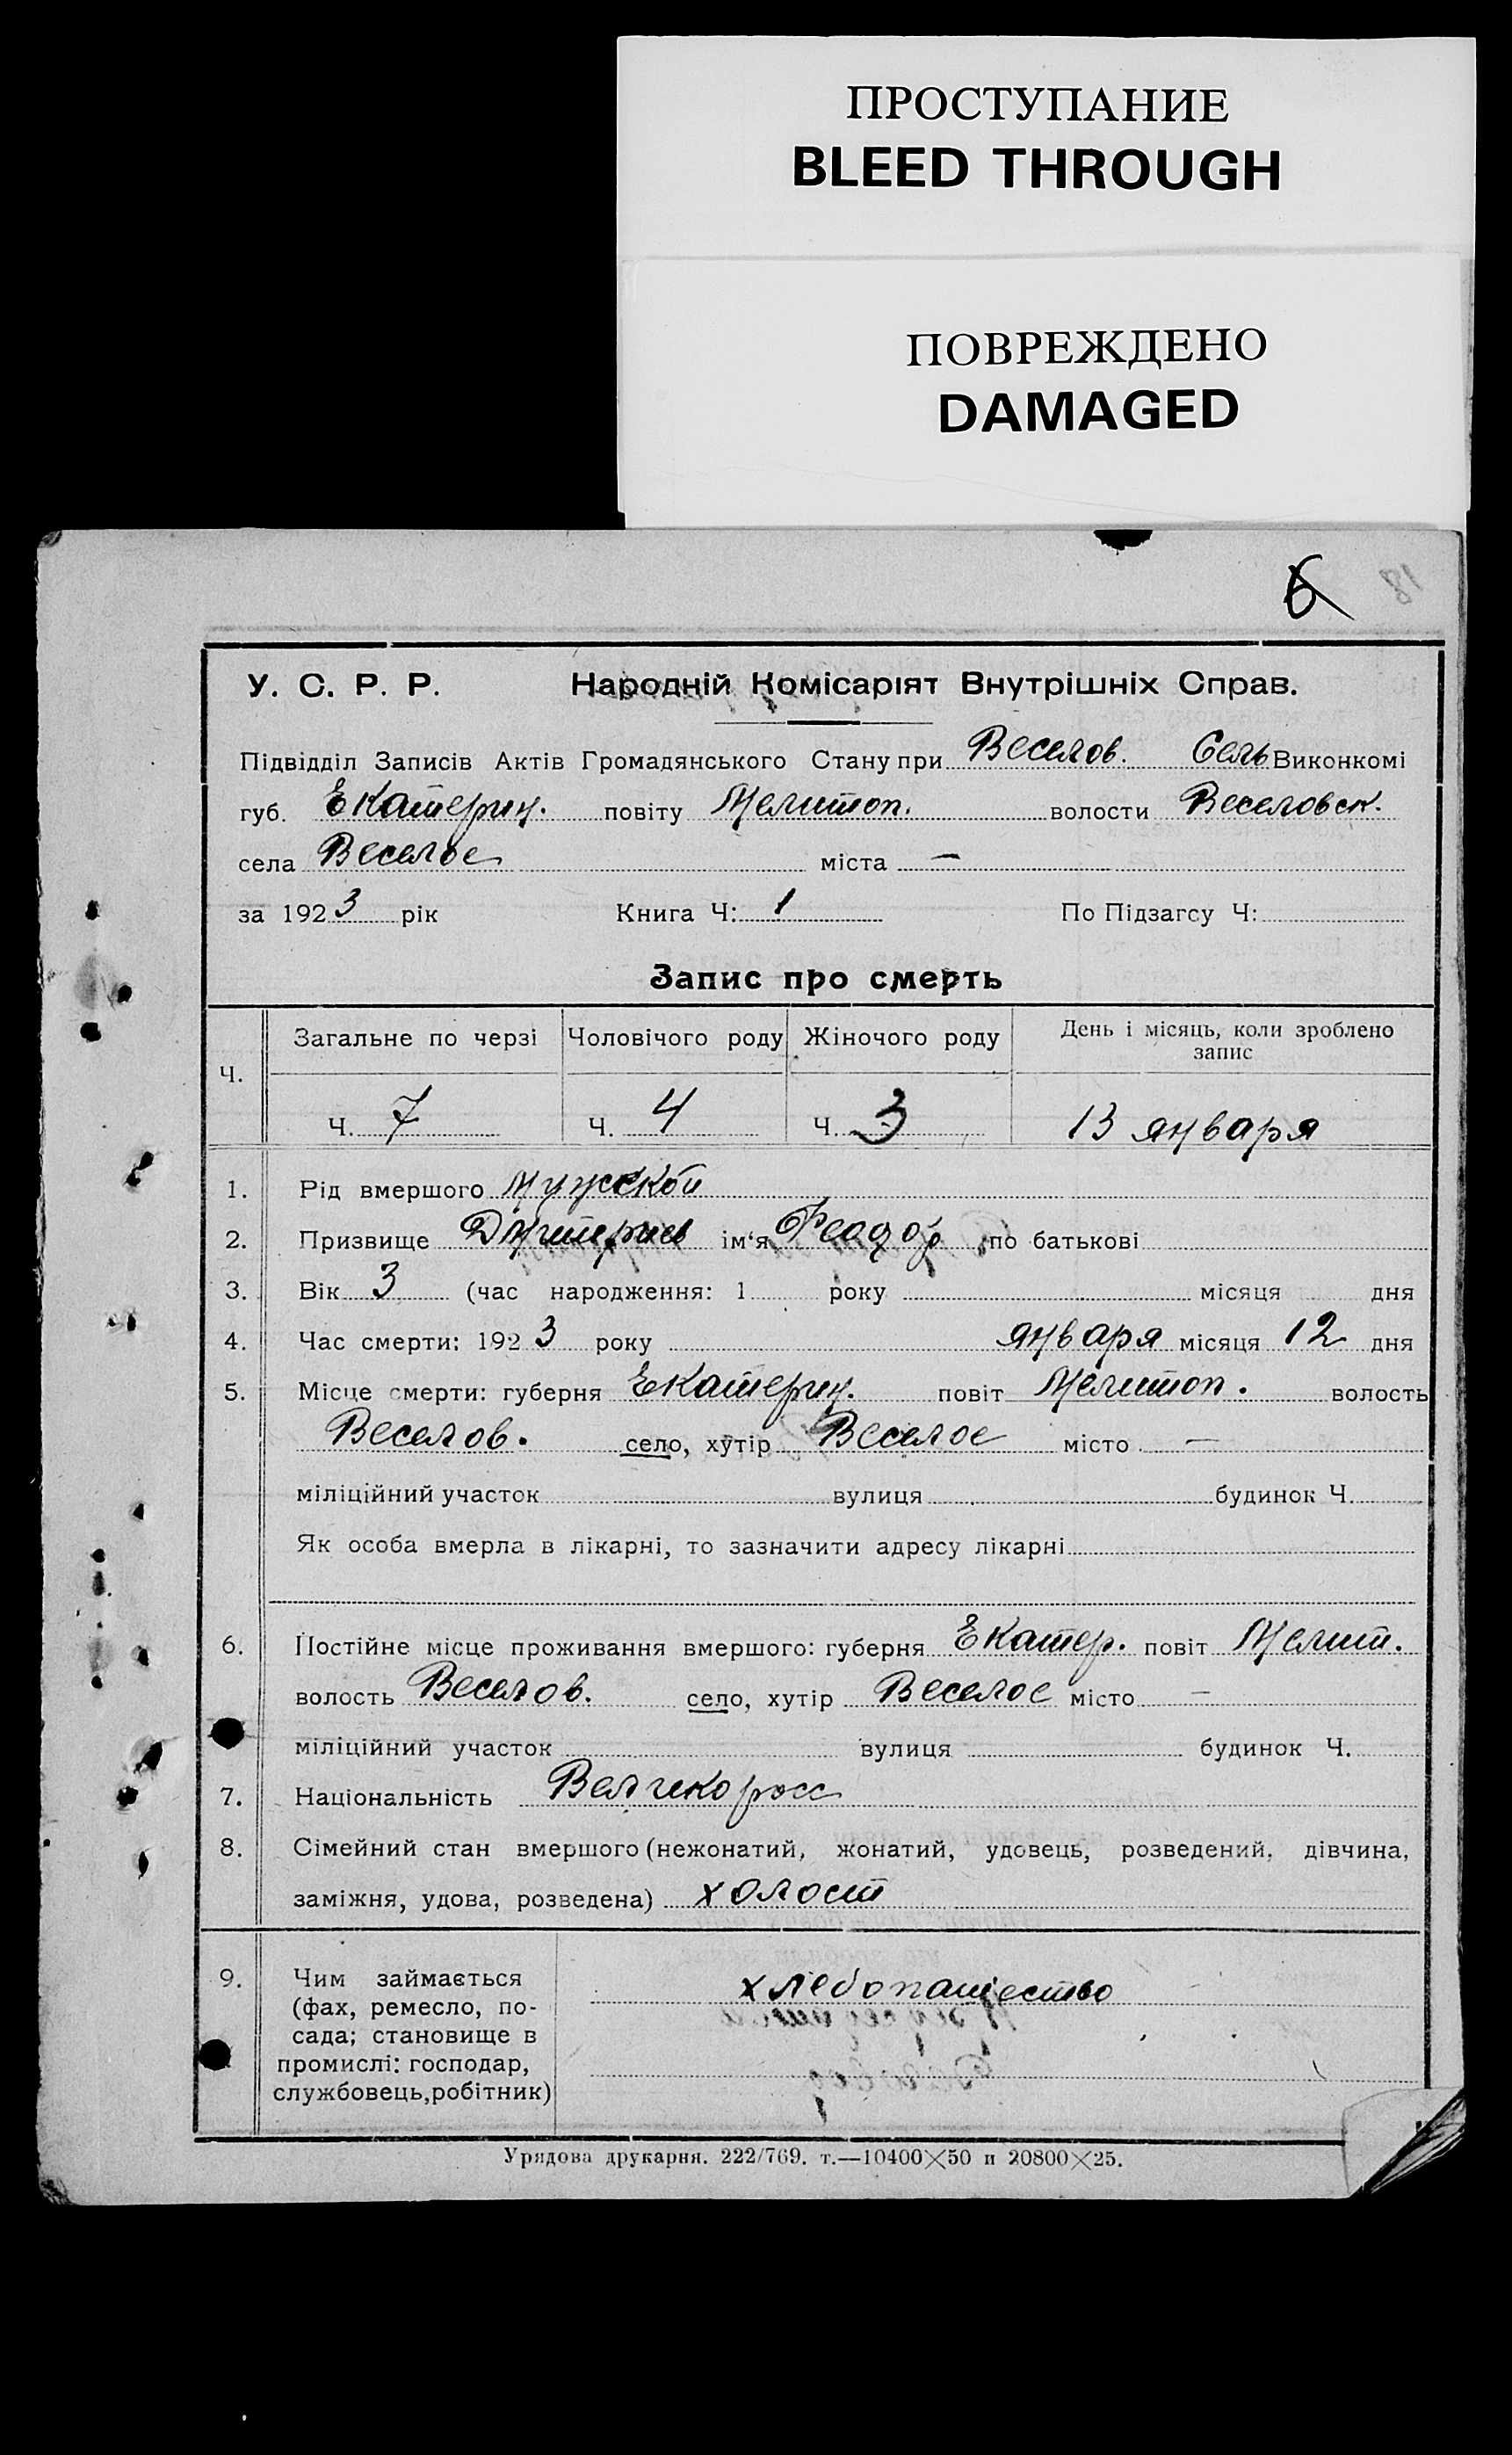 ПРОСТУПАНИЕ
BLEED THROUGH
ПОВРЕЖДЕНО
DAMAGED
6 18
У. С. Р. Р. Народній Комісаріят Внутрішніх Справ.
Підвідділ Записів Актів Громадянського Стану при Веселов. Сель Виконкомі
губ. Екатерин. повіту Мелитоп. волости Веселовск.
села Веселое міста —
за 1923 рік Книга Ч: 1 По Підзагсу Ч:
Запис про смерть
Ч. Загальне по черзі Чоловічого роду Жіночого роду День і місяць, коли зроблено запис
Ч. 7 Ч. 4 Ч. 3 13 января
1. Рід вмершого Мужской
2. Призвище Дмитриев ім‘я Феодор по батькові
3. Вік 3 (час народження: 1 року місяця дня
4. Час смерти: 1923 року января місяця 12 дня
5. Місце смерти: губерня Екатерин. повіт Мелитоп. волость
Веселов. село, хутір Веселое місто —
міліційний участок вулиця будинок Ч.
Як особа вмерла в лікарні, то зазначити адресу лікарні
6. Постійне місце проживання вмершого: губерня Екатер. повіт Мелит.
волость Веселов. село, хутір Веселое місто —
міліційний участок вулиця будинок Ч.
7. Національність Великоросс
8. Сімейний стан вмершого (нежонатий, жонатий, удовець, розведений, дівчина,
заміжня, удова, розведена) холост
9. Чим займається хлебопашество
(фах, ремесло, по-
сада; становище в
промислі: господар,
службовець,робітник)
Урядова друкарня. 222/769. т.—10400×50 и 20800×25.